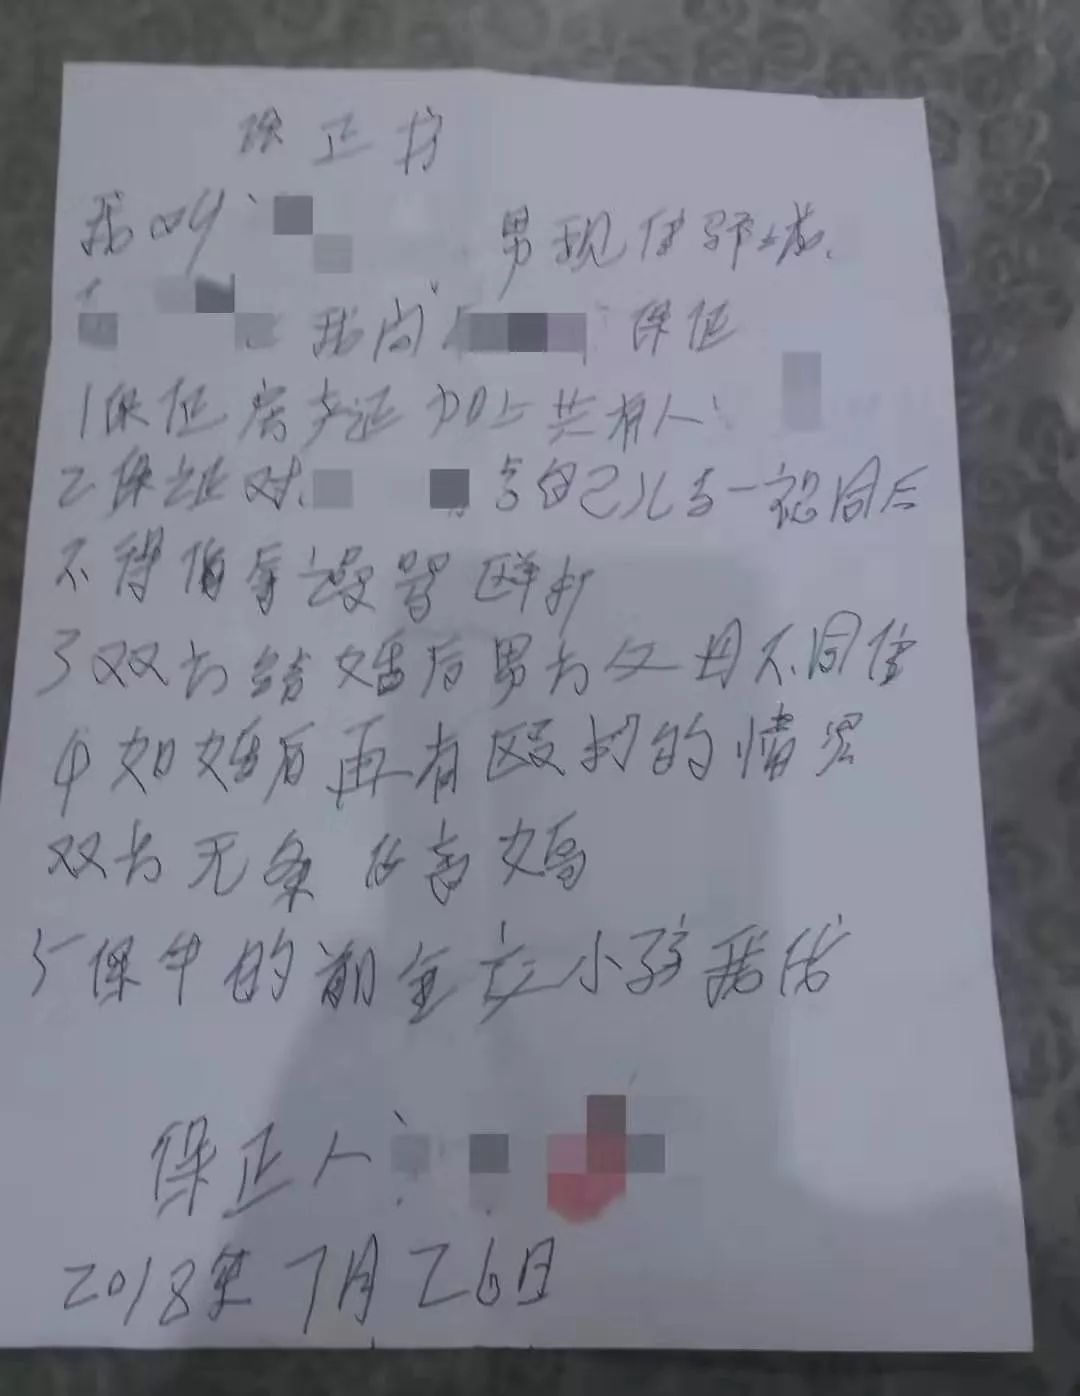 保正书
我叫: 男现住郓城.
我向 保证
1保证房产证加上共有人:
2保证对 与自己儿女一视同仁
不得侮辱谩骂殴打
3双方结婚后男方父母不同住
4如婚后再有殴打的情况
双方无条件离婚
5保牛的前全 小孩
保正人:
2018年7月26日